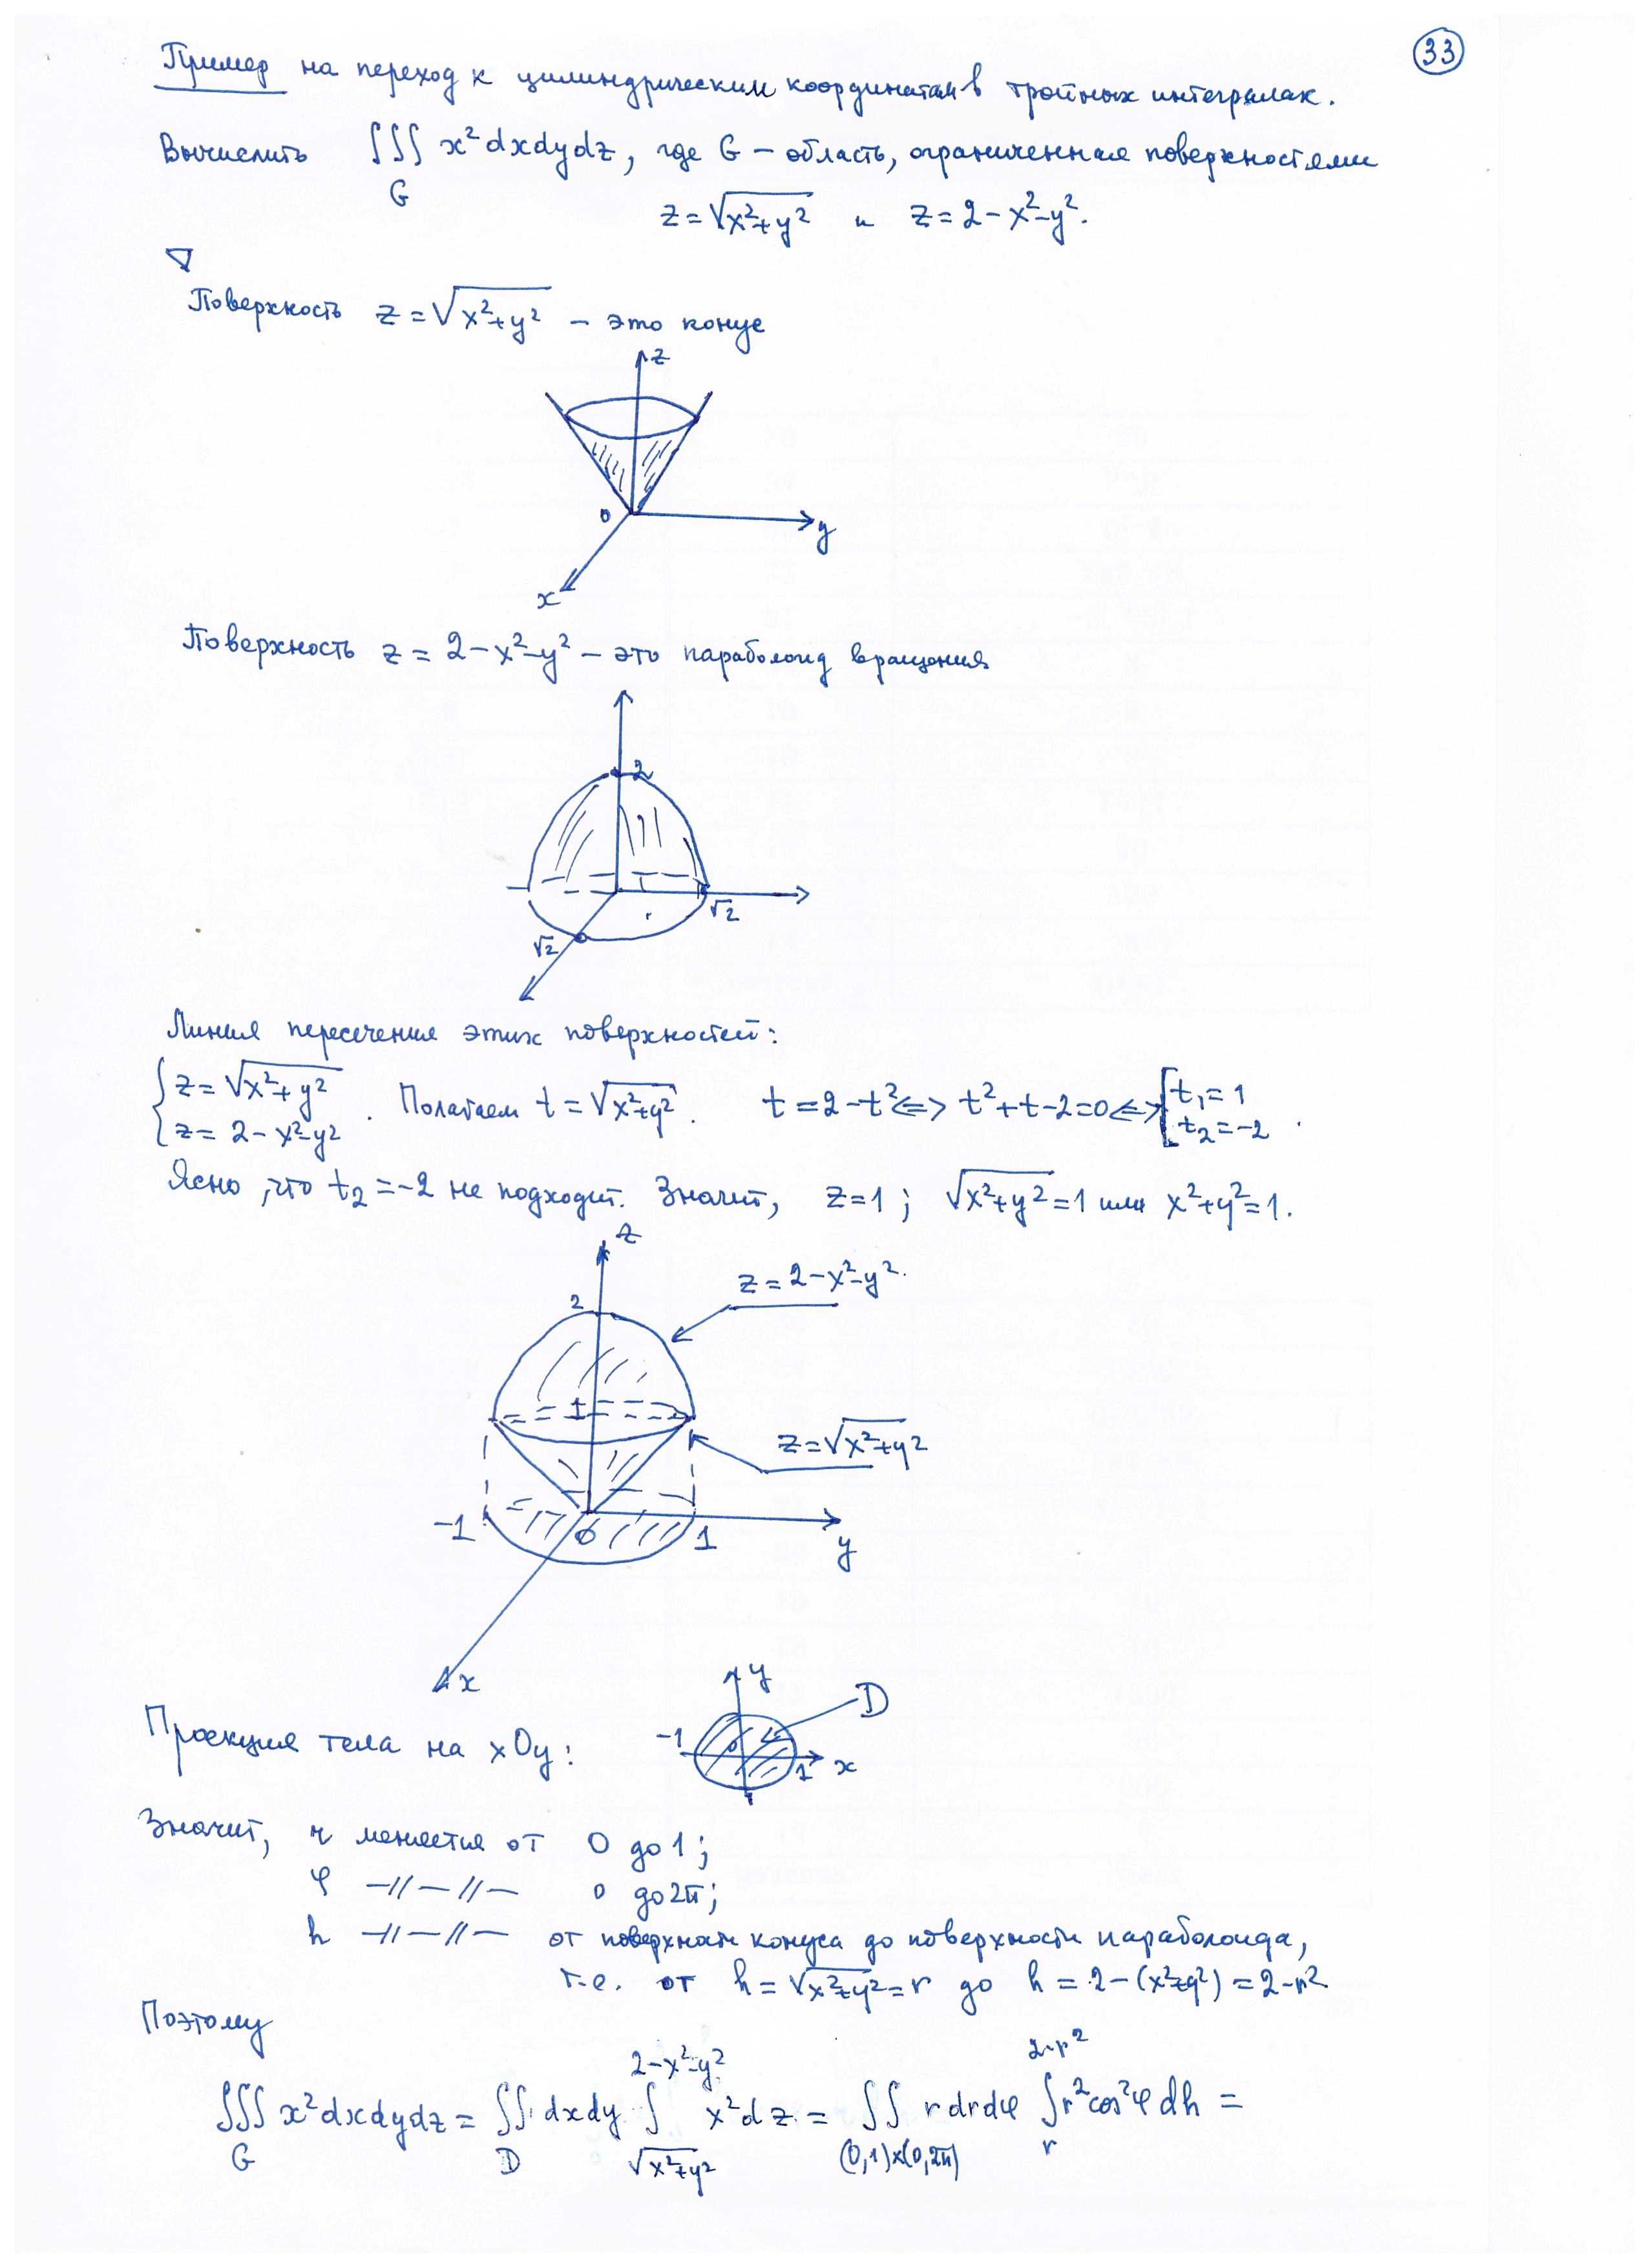 33
Пример на переход к цилиндрическим координатам в тройных интегралах.
Вычислить ∫∫∫ x² dxdydz, где G – область, ограниченная поверхностями
G
z = √(x²+y²) и z = 2 – x² – y².
∇
Поверхность z = √(x²+y²) – это конус
z
0
y
x
Поверхность z = 2 – x² – y² – это параболоид вращения
2
√2
√2
Линия пересечения этих поверхностей:
{ z = √(x²+y²)
z = 2 – x² – y² . Полагаем t = √(x²+y²). t = 2 – t² <=> t² + t – 2 = 0 <=> [ t₁ = 1
t₂ = –2 .
Ясно, что t₂ = –2 не подходит. Значит, z = 1 ; √(x²+y²) = 1 или x²+y² = 1.
z
z = 2 – x² – y².
2
1
z = √(x²+y²)
–1
0
1
y
x
y
D
Проекция тела на xOy :
–1
0
1
x
Значит, r меняется от 0 до 1 ;
φ –//–//– 0 до 2π ;
h –//–//– от поверхности конуса до поверхности параболоида,
т.е. от h = √(x²+y²) = r до h = 2 – (x²+y²) = 2 – r²
Поэтому
2–x²–y² 2–r²
∫∫∫ x² dxdydz = ∫∫ dxdy ∫ x² dz = ∫∫ r dr dφ ∫ r² cos² φ dh =
G D √(x²+y²) (0,1)×(0,2π) r